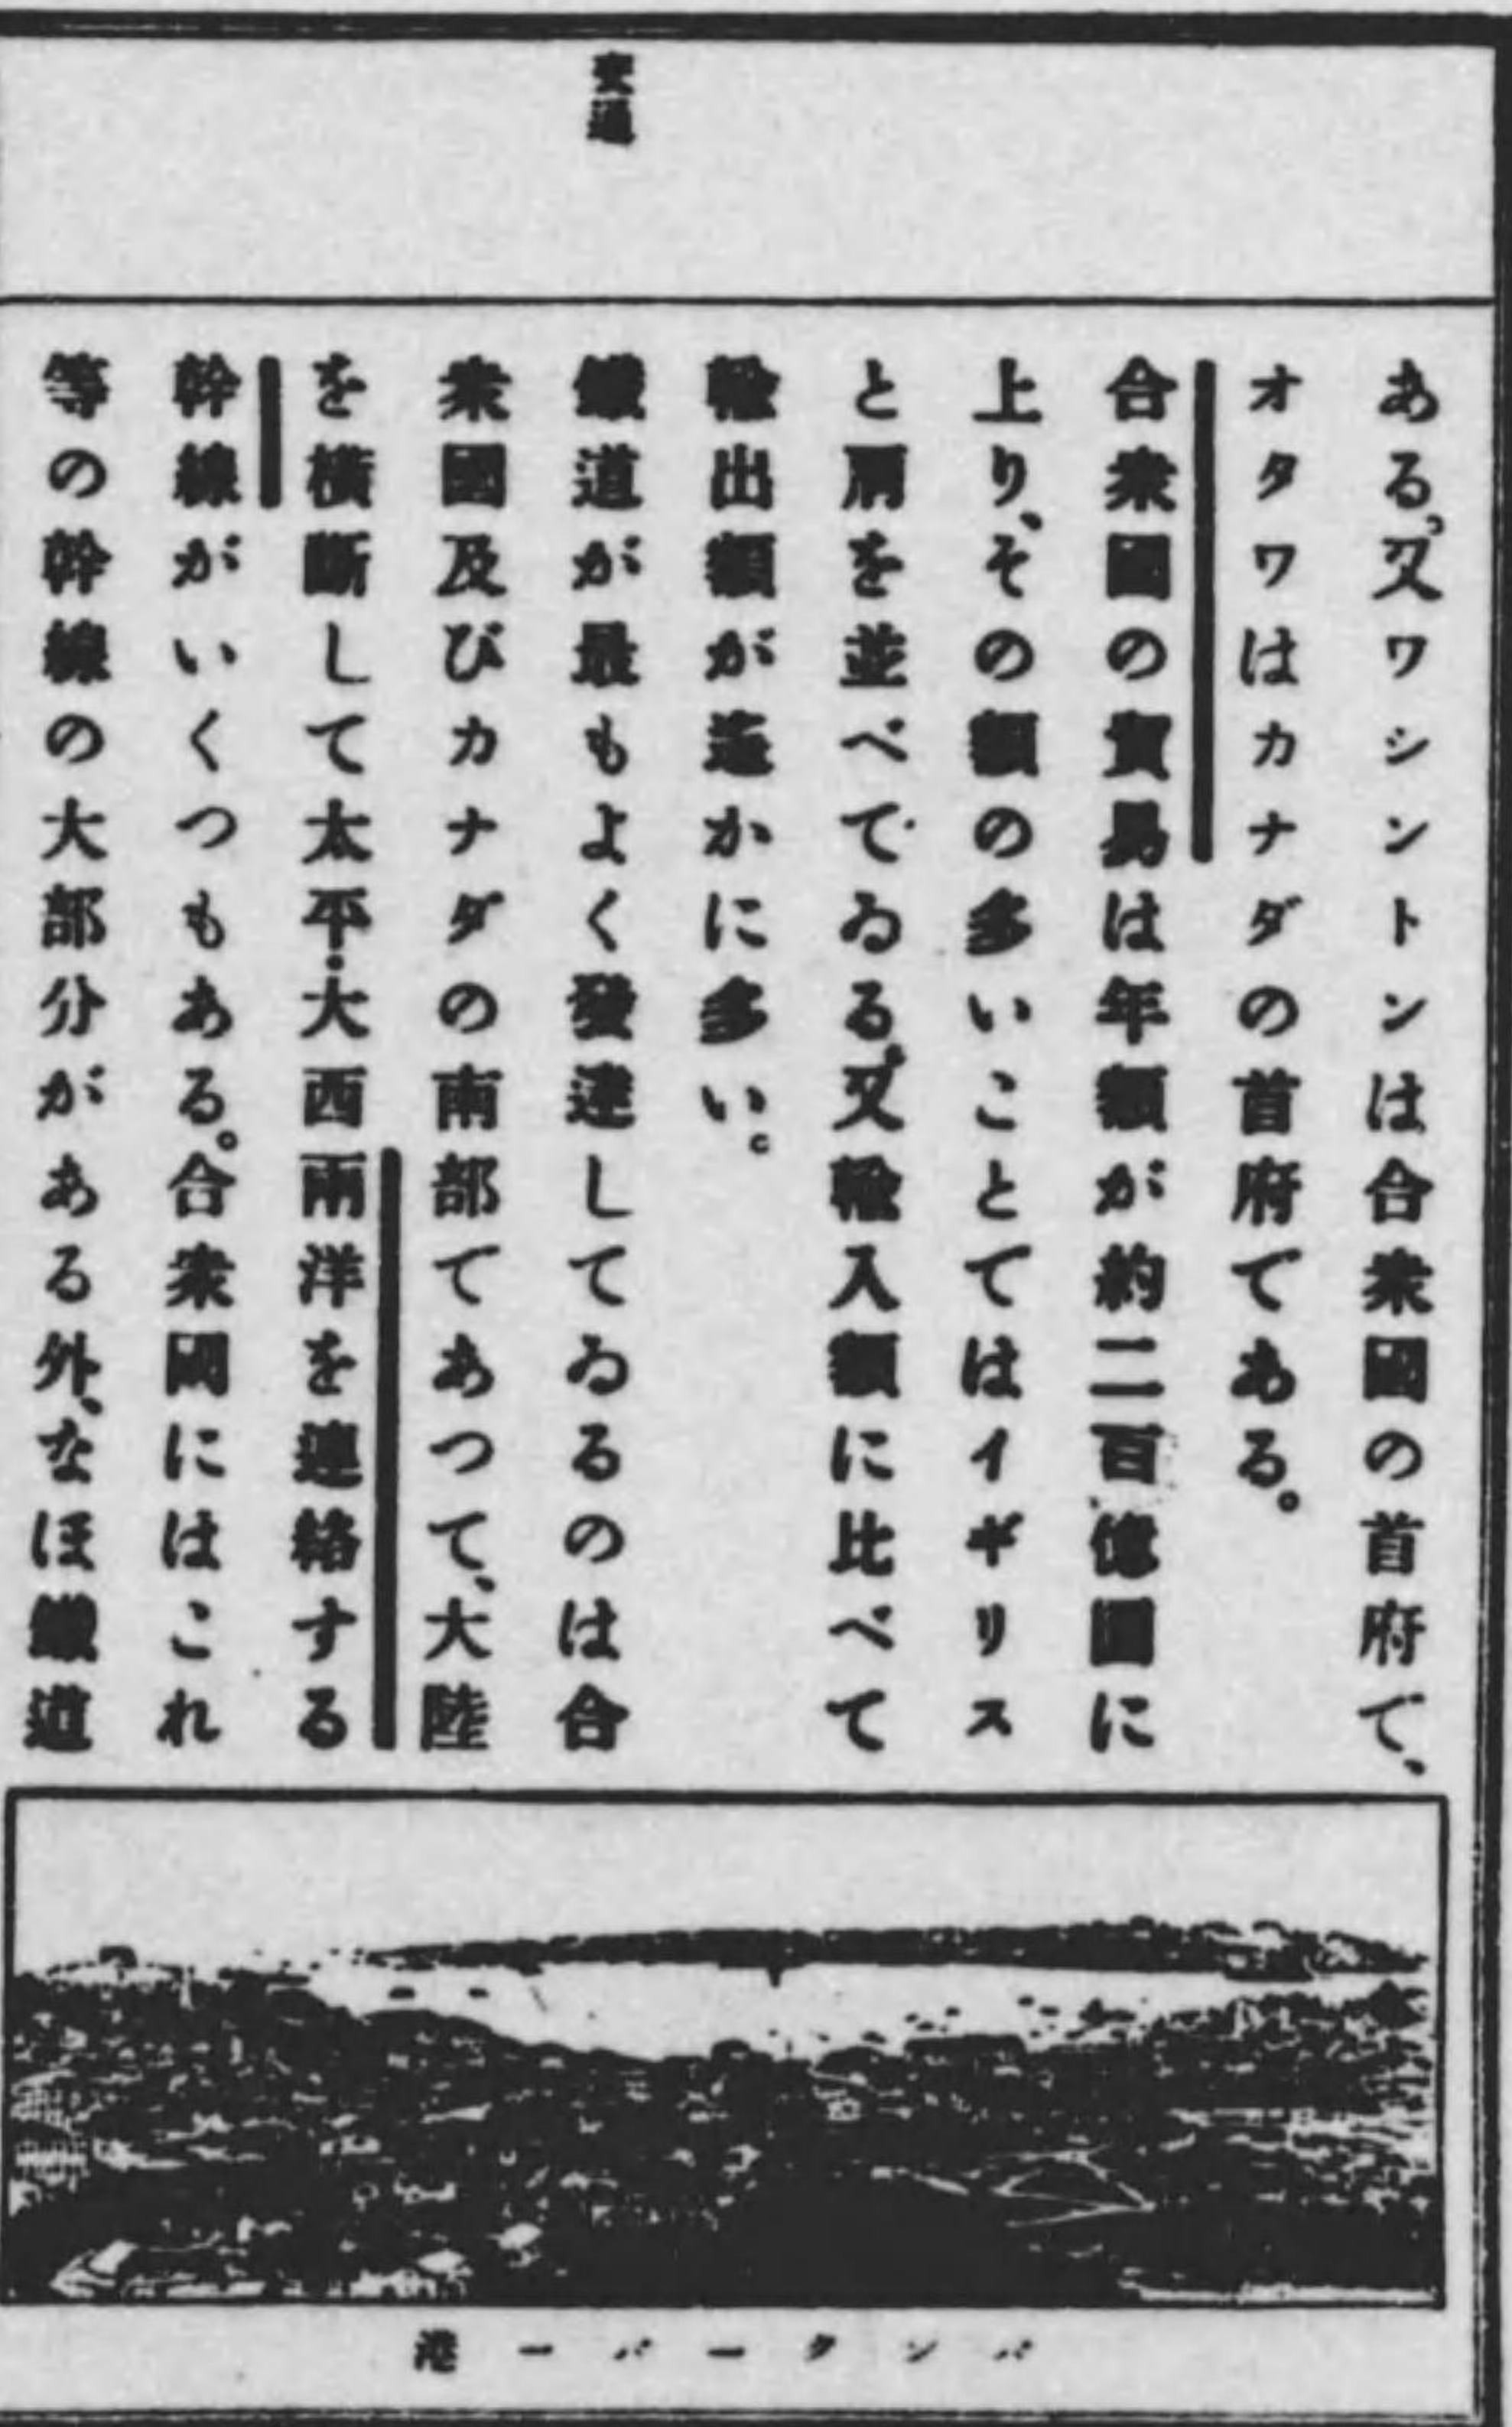 交通
ある。又ワシントンは合衆國の首府で、
オタワはカナダの首府である。
合衆國の貿易は年額が約二百億圓に
上り、その額の多いことではイギリス
と肩を並べてゐる。又輸入額に比べて
輸出額が遙かに多い。
鐵道が最もよく發達してゐるのは合
衆國及びカナダの南部であつて、大陸
を横斷して太平・大西兩洋を連絡する
幹線がいくつもある。合衆國にはこれ
等の幹線の大部分がある外、なほ鐵道
バンクーバー港